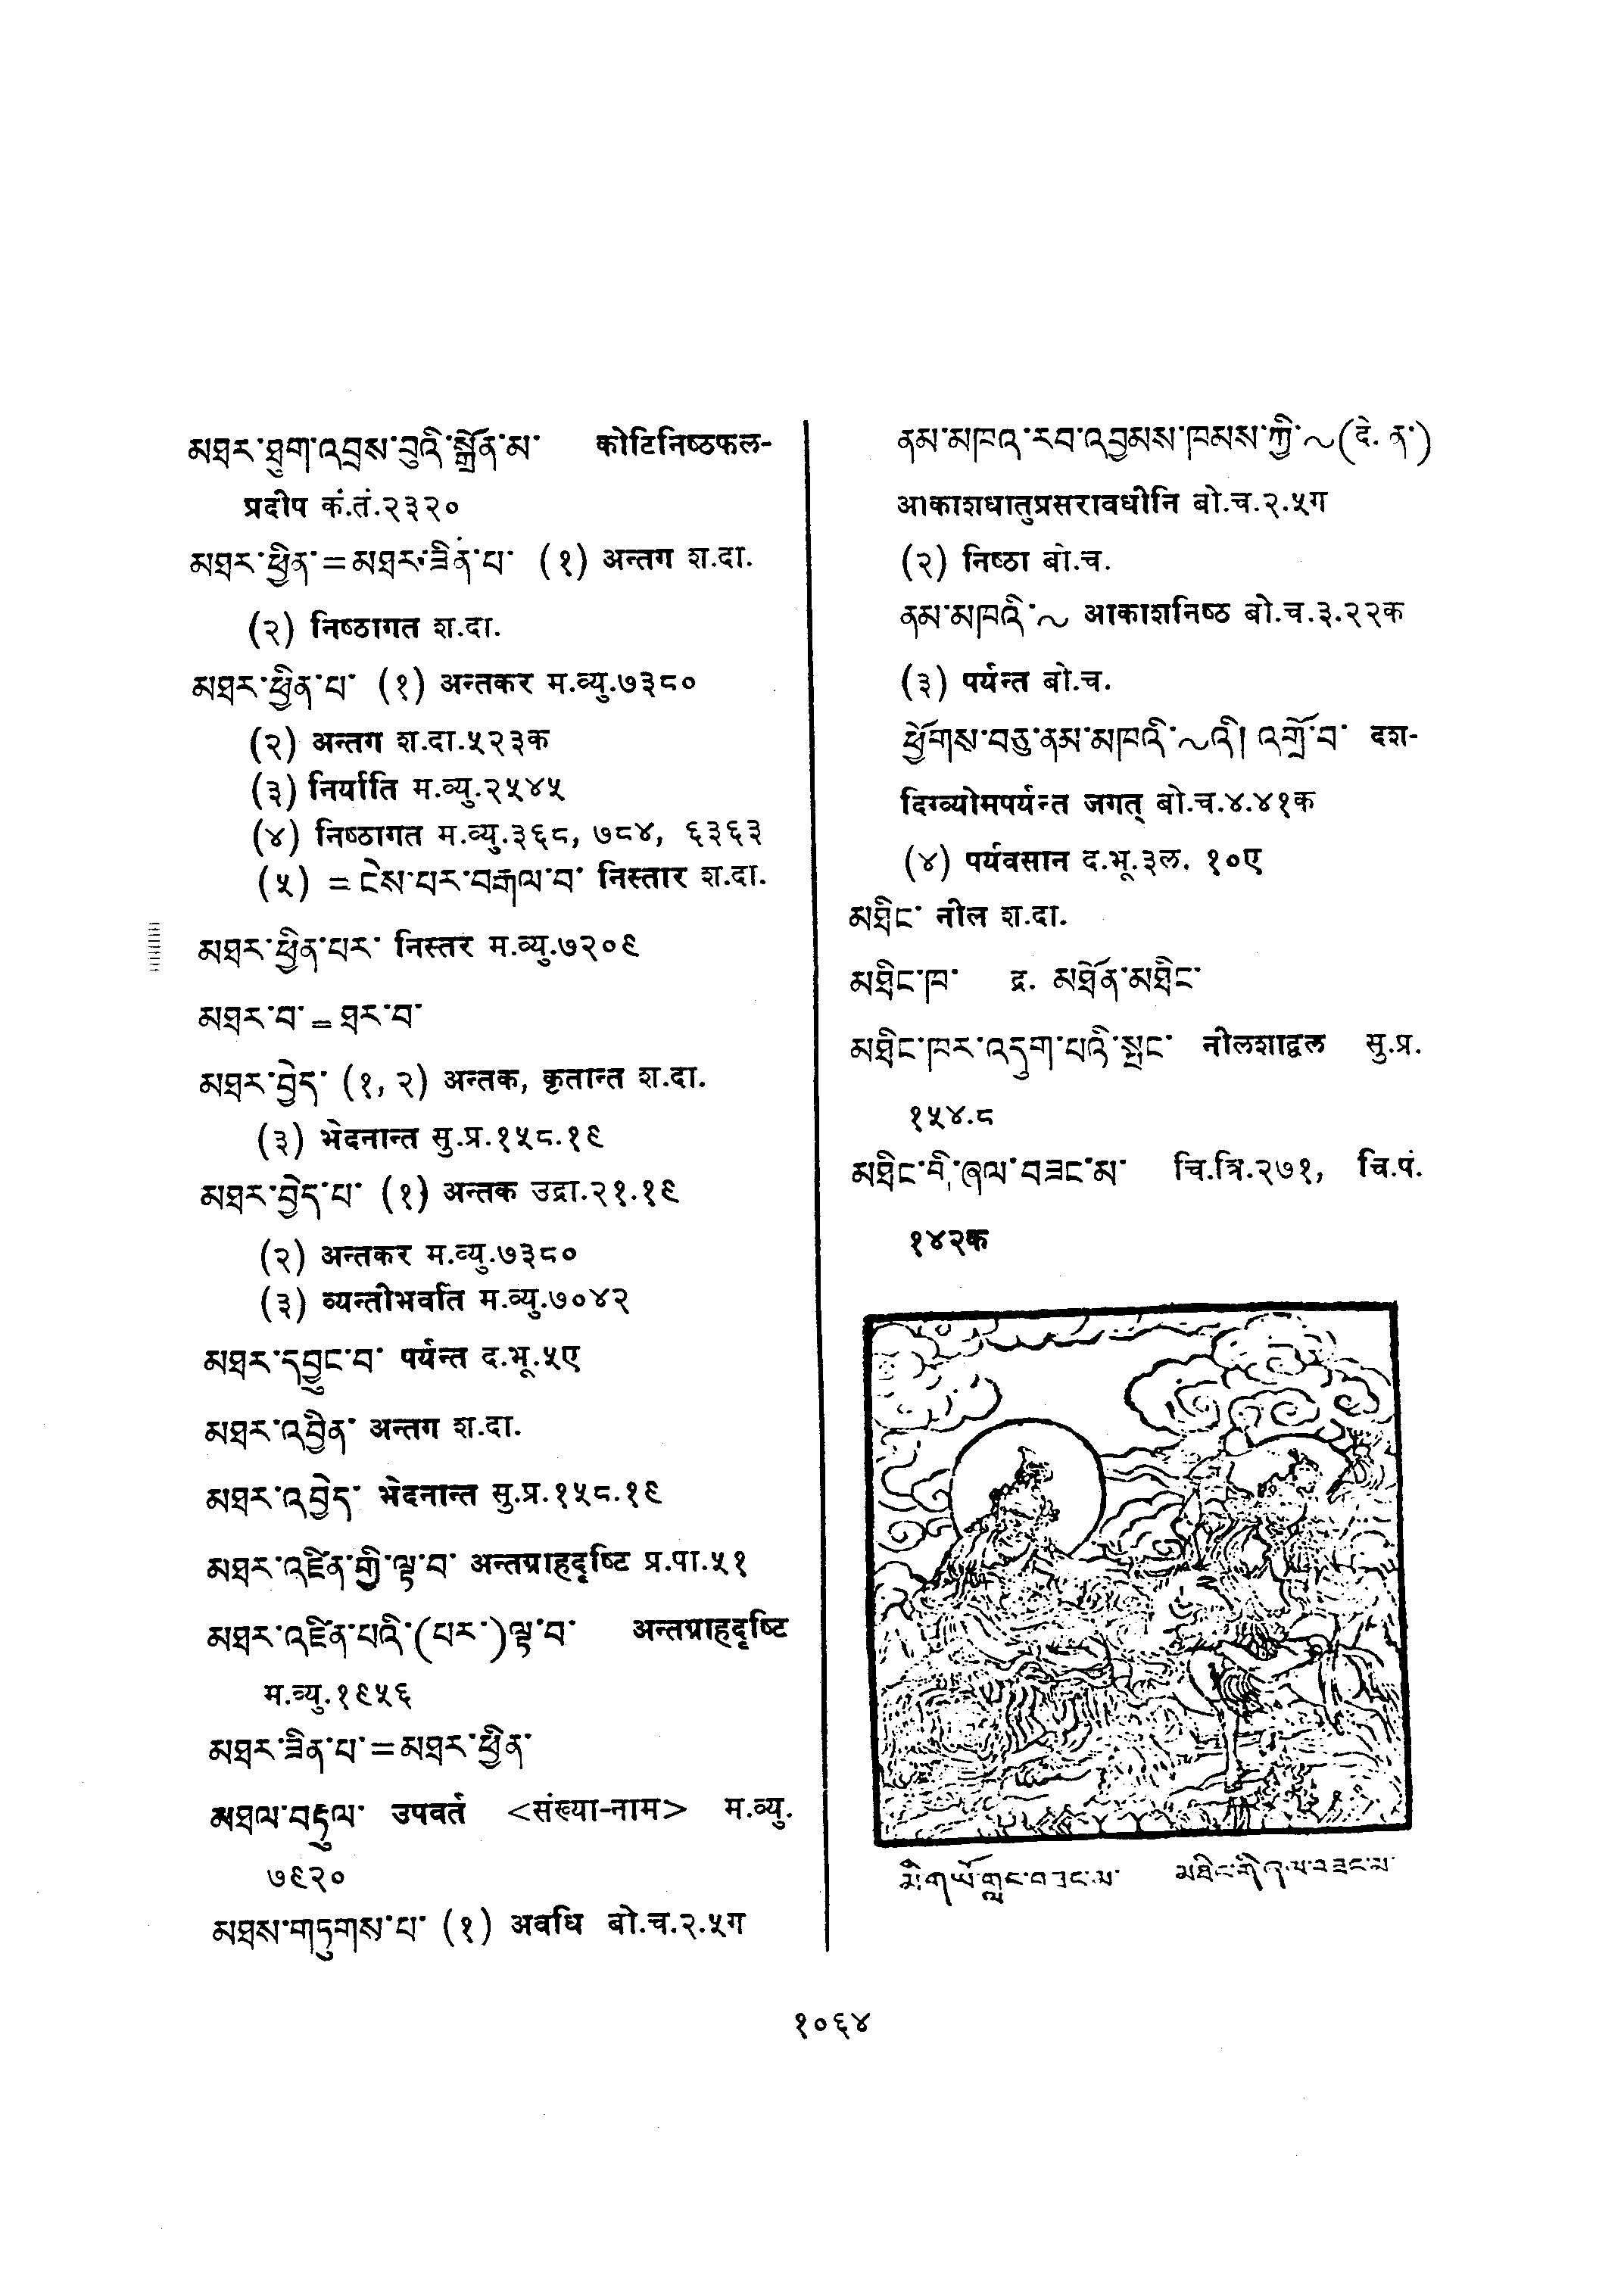 མཐར་ཐུག་འབྲས་བུའི་སྒྲོན་མ་ कोटिनिष्ठफल-
प्रदीप कं.तं.२३२०
མཐར་ཕྱིན་=མཐར་ཟིན་པ་ (१) अन्तग श.दा.
(२) निष्ठागत श.दा.
མཐར་ཕྱིན་པ་ (१) अन्तकर म.व्यु.७३८०
(२) अन्तग श.दा.५२३क
(३) निर्याति म.व्यु.२५४५
(४) निष्ठागत म.व्यु.३६८, ७८४, ६३६३
(५) =ངེས་པར་བརྒལ་བ་ निस्तार श.दा.
མཐར་ཕྱིན་པར་ निस्तर म.व्यु.७२०९
མཐར་བ་=ཐར་བ་
མཐར་བྱེད་ (१, २) अन्तक, कृतान्त श.दा.
(३) भेदनान्त सु.प्र.१५८.१९
མཐར་བྱེད་པ་ (१) अन्तक उद्रा.२१.१९
(२) अन्तकर म.व्यु.७३८०
(३) व्यन्तीभवति म.व्यु.७०४२
མཐར་དབྱུང་བ་ पर्यन्त द.भू.५ए
མཐར་འབྱིན་ अन्तग श.दा.
མཐར་འབྱེད་ भेदनान्त सु.प्र.१५८.१९
མཐར་འཛིན་གྱི་ལྟ་བ་ अन्तग्राहदृष्टि प्र.पा.५१
མཐར་འཛིན་པའི་(པར་)ལྟ་བ་ अन्तग्राहदृष्टि
म.व्यु.१९५६
མཐར་ཟིན་པ་=མཐར་ཕྱིན་
མཐལ་བརྡུལ་ उपवर्त <संख्या-नाम> म.व्यु.
७९२०
མཐས་གཏུགས་པ་ (१) अवधि बो.च.२.५ग
ནམ་མཁའ་རབ་འབྱམས་ཁམས་ཀྱི་~(དེ. ན་)
आकाशधातुप्रसरावधीनि बो.च.२.५ग
(२) निष्ठा बो.च.
ནམ་མཁའི་~ आकाशनिष्ठ बो.च.३.२२क
(३) पर्यन्त बो.च.
ཕྱོགས་བཅུ་ནམ་མཁའི་~འི། འགྲོ་བ་ दश-
दिग्व्योमपर्यन्त जगत् बो.च.४.४१क
(४) पर्यवसान द.भू.३ल. १०ए
མཐིང་ नील श.दा.
མཐིང་ཁ་ द्र. མཐོན་མཐིང་
མཐིང་ཁར་འདུག་པའི་སྤང་ नीलशाद्वल सु.प्र.
१५४.८
མཐིང་གི་ཞལ་བཟང་མ་ चि.त्रि.२७१, चि.पं.
१४२क
མི་གཡོ་གླང་བཟང་མ་
१०६४